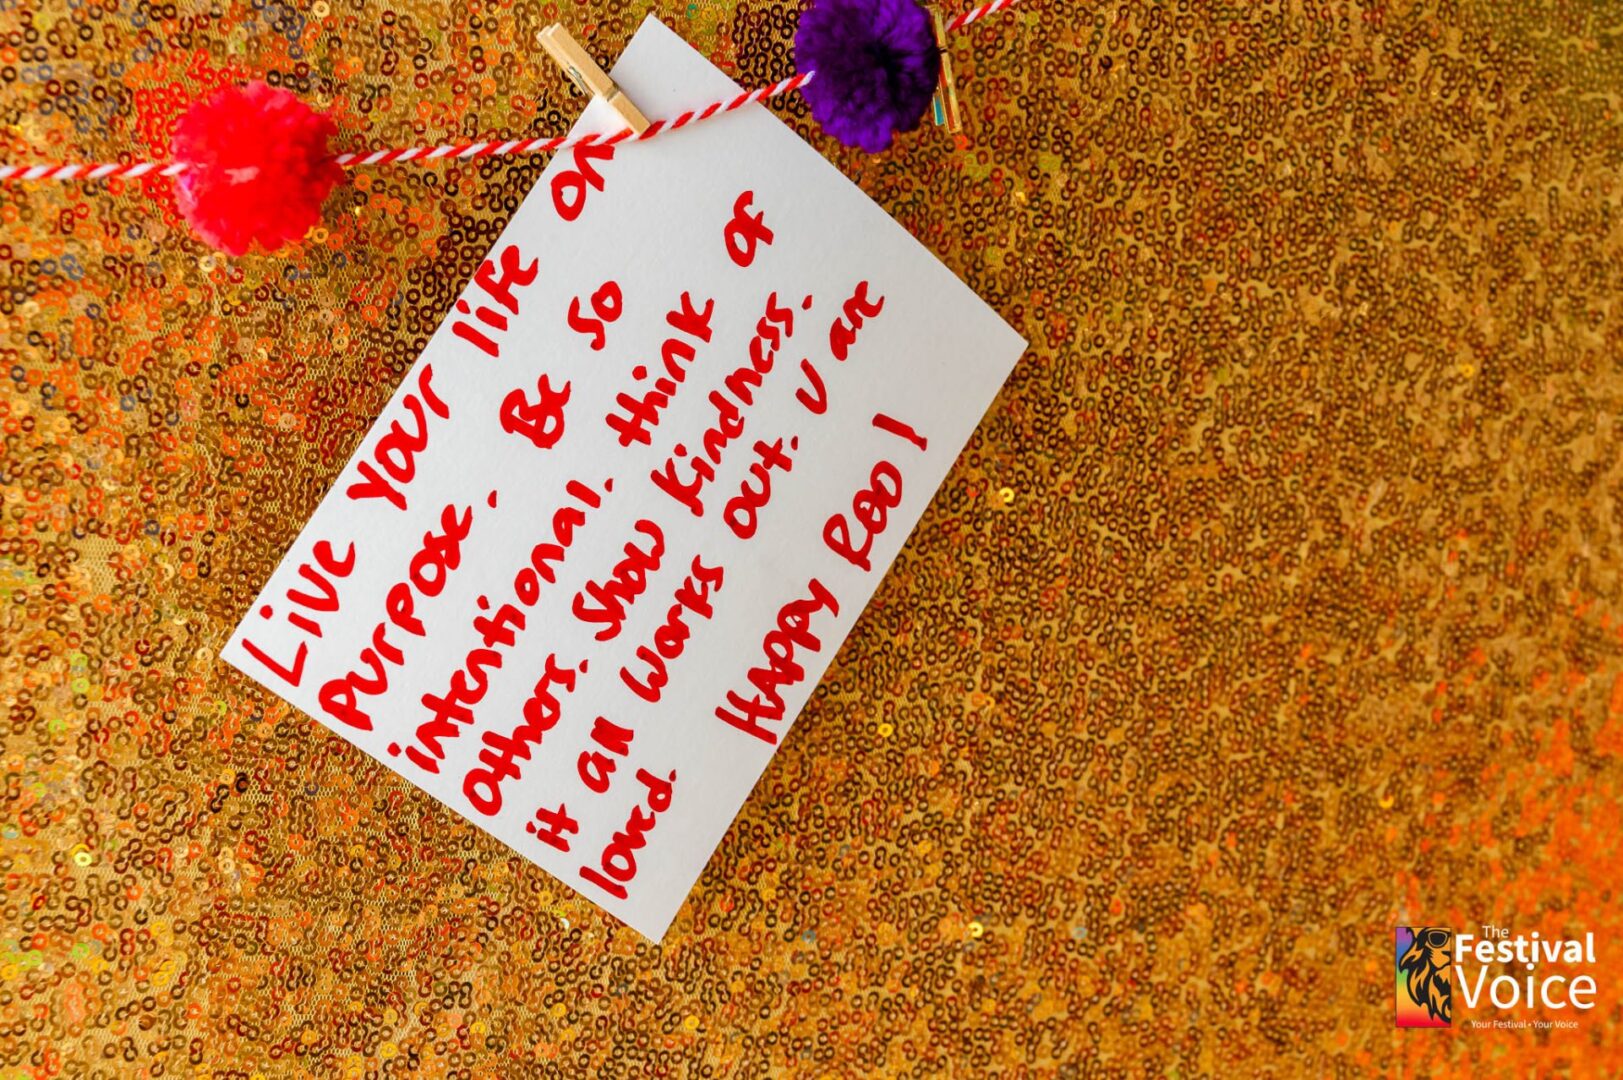 Live your life on
purpose. Be so
intentional. think of
others. Show kindness.
it all works out. U are
loved.
Happy Roo!
The
Festival
Voice
Your Festival • Your Voice